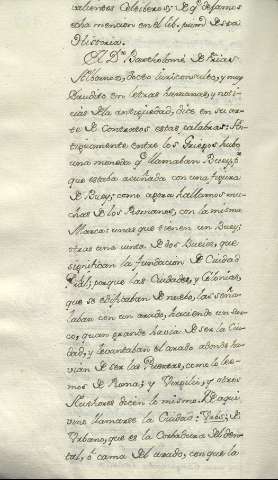 valientes Celtiberos; de q̃ dejamos
echa mencion en el lib. prim.º de esta
Historia.
El D.ʳ Bartholomé de Frias
Albornoz, docto Jurisconsulto, y muy
erudito en letras humanas, y noti-
cias de la antiguedad, dice en su ar-
te de Contratos estas palabras: An-
tiguamente entre los Griegos hubo
una moneda q̃ llamaban Buey, p.ʳ
que estaba acuñada con una figura
de Buey; como agora hallamos mu-
chas de los Romanos, con la misma
Marca: unas que tienen un Buey;
otras una iunta de dos Bueies, que
significan la fundacion de Ciudad
Real; porque las Ciudades, y Colonias,
que se edificaban de nuebo, las seña-
laban con un arado, haciendo un sur-
co, quan grande havia de ser la Ciu-
dad, y levantaban el arado adonde ha-
vian de ser las Puertas, como lo lee-
mos de Roma; y Virgilio, y otros
Authores dicen lo mismo. De aqui
vino llamarse la Ciudad: Urbs; de
Urbano, que es la Corbadura del den-
tal, ó cama del arado, con que la